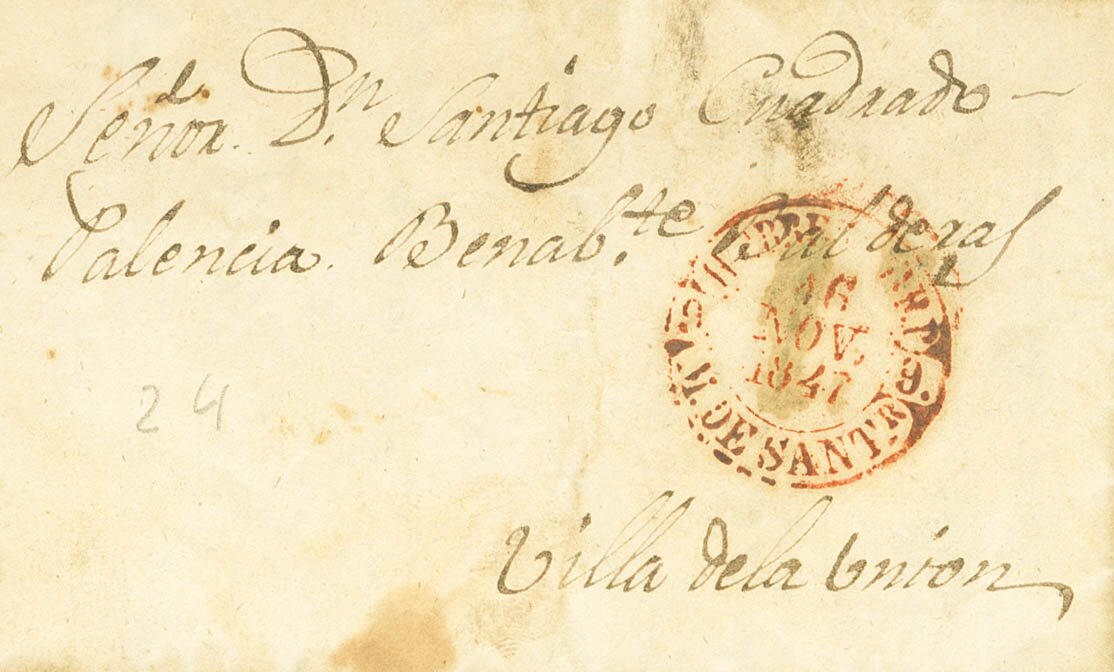 Señor. Dn. Santiago Cuadrado
Palencia. Benab.te Valderas
16
NOV.
1847
M. DE SANTR
Villa de la Union
24